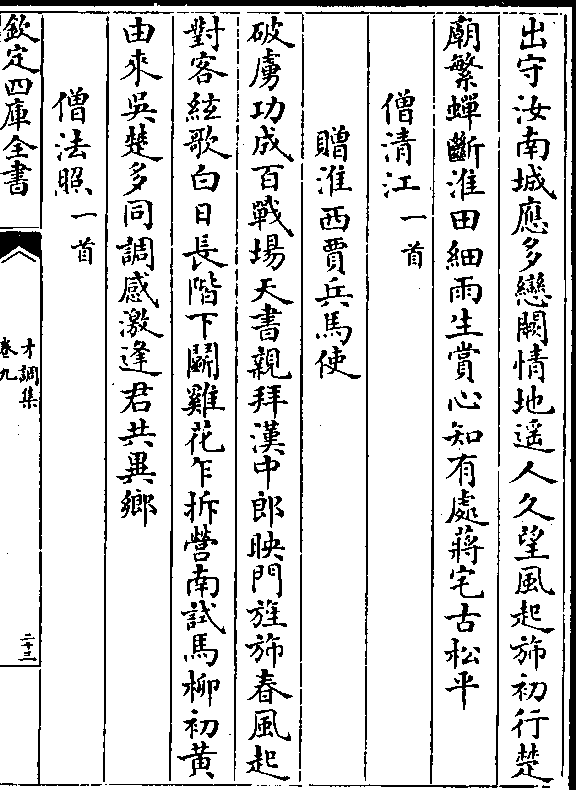 出守汝南城應多戀闕情地遥人久望風起斾初行楚
廟繁蟬斷淮田細雨生賞心知有處蔣宅古松平
僧清江一首
贈淮西賈兵馬使
破虜功成百戰場天書親拜漢中郎映門旌斾春風起
對客絃歌白日長階下鬬雞花乍拆營南試馬柳初黃
由來吳楚多同調感激逢君共異鄉
僧法照一首
欽定四庫全書
才調集
卷九
二十三